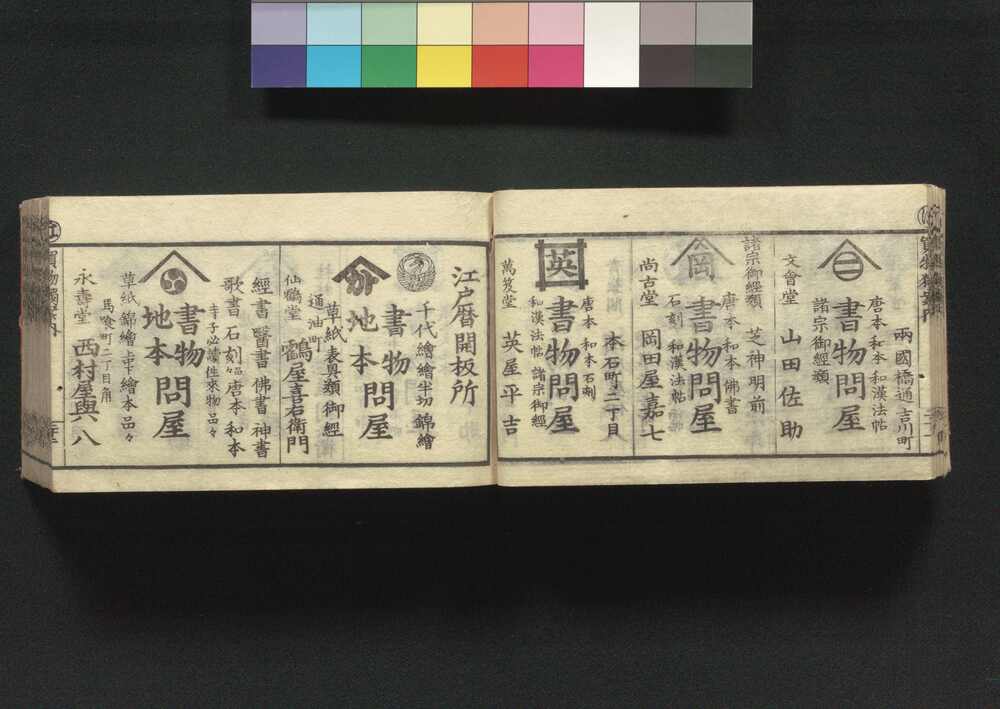 兩國橋通吉川町
唐本和本和漢法帖
書物問屋
諸宗御經類
山田佐助
文會堂
諸宗御經類
芝神明前
唐本和本佛書
岡
書物問屋
石刻和漢法帖
岡田屋嘉七
尚古堂
本石町二丁目
唐本和本石刻
英
書物問屋
和漢法帖諸宗御經
英屋平吉
萬笈堂
江戸暦開板所
千代繪繪半切錦繪
書物
地本
問屋
草紙表具類御經
通油町
鶴屋喜右衛門
仙鶴堂
經書醫書佛書神書
歌書石刻唐本和本
寺子必讀往來物品々
書物
地本
問屋
草紙錦繪繪本品々
馬喰町二丁目角
西村屋與八
永壽堂
買物獨案内